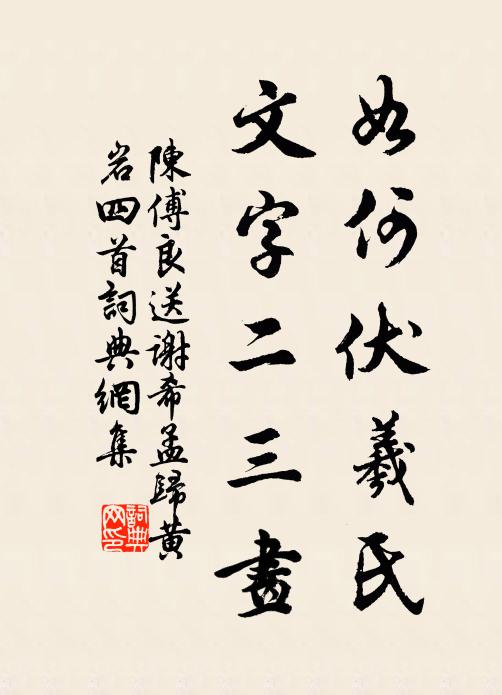 如何伏羲氏
文字二三畫
陳傅良送謝希孟歸黃
岩四首詞典網集
詞典
网印